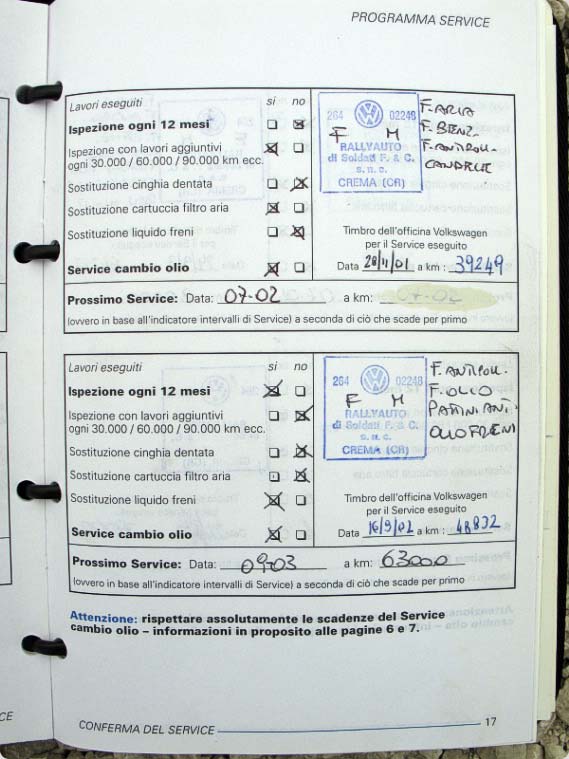 PROGRAMMA SERVICE
Lavori eseguiti si no
Ispezione ogni 12 mesi
Ispezione con lavori aggiuntivi
ogni 30.000 / 60.000 / 90.000 km ecc.
Sostituzione cinghia dentata
Sostituzione cartuccia filtro aria
Sostituzione liquido freni
Service cambio olio
264 02248
F M
RALLYAUTO
di Soldati F. & C.
s.n.c.
CREMA (CR)
F. ARIA
F. BENZ.
F. ANTIPOLL.
CANDELE
Timbro dell'officina Volkswagen
per il Service eseguito
Data 28/11/01 a km : 39249
Prossimo Service: Data: 07-02 a km: 07-02
(ovvero in base all'indicatore intervalli di Service) a seconda di ciò che scade per primo
Lavori eseguiti si no
Ispezione ogni 12 mesi
Ispezione con lavori aggiuntivi
ogni 30.000 / 60.000 / 90.000 km ecc.
Sostituzione cinghia dentata
Sostituzione cartuccia filtro aria
Sostituzione liquido freni
Service cambio olio
264 02248
F M
RALLYAUTO
di Soldati F. & C.
s.n.c.
CREMA (CR)
F. ANTIPOLL.
F. OLIO
PATTINI ANT.
OLIO FRENI
Timbro dell'officina Volkswagen
per il Service eseguito
Data 16/9/02 a km : 48832
Prossimo Service: Data: 09-03 a km: 63000
(ovvero in base all'indicatore intervalli di Service) a seconda di ciò che scade per primo
Attenzione: rispettare assolutamente le scadenze del Service
cambio olio – informazioni in proposito alle pagine 6 e 7.
CONFERMA DEL SERVICE 17